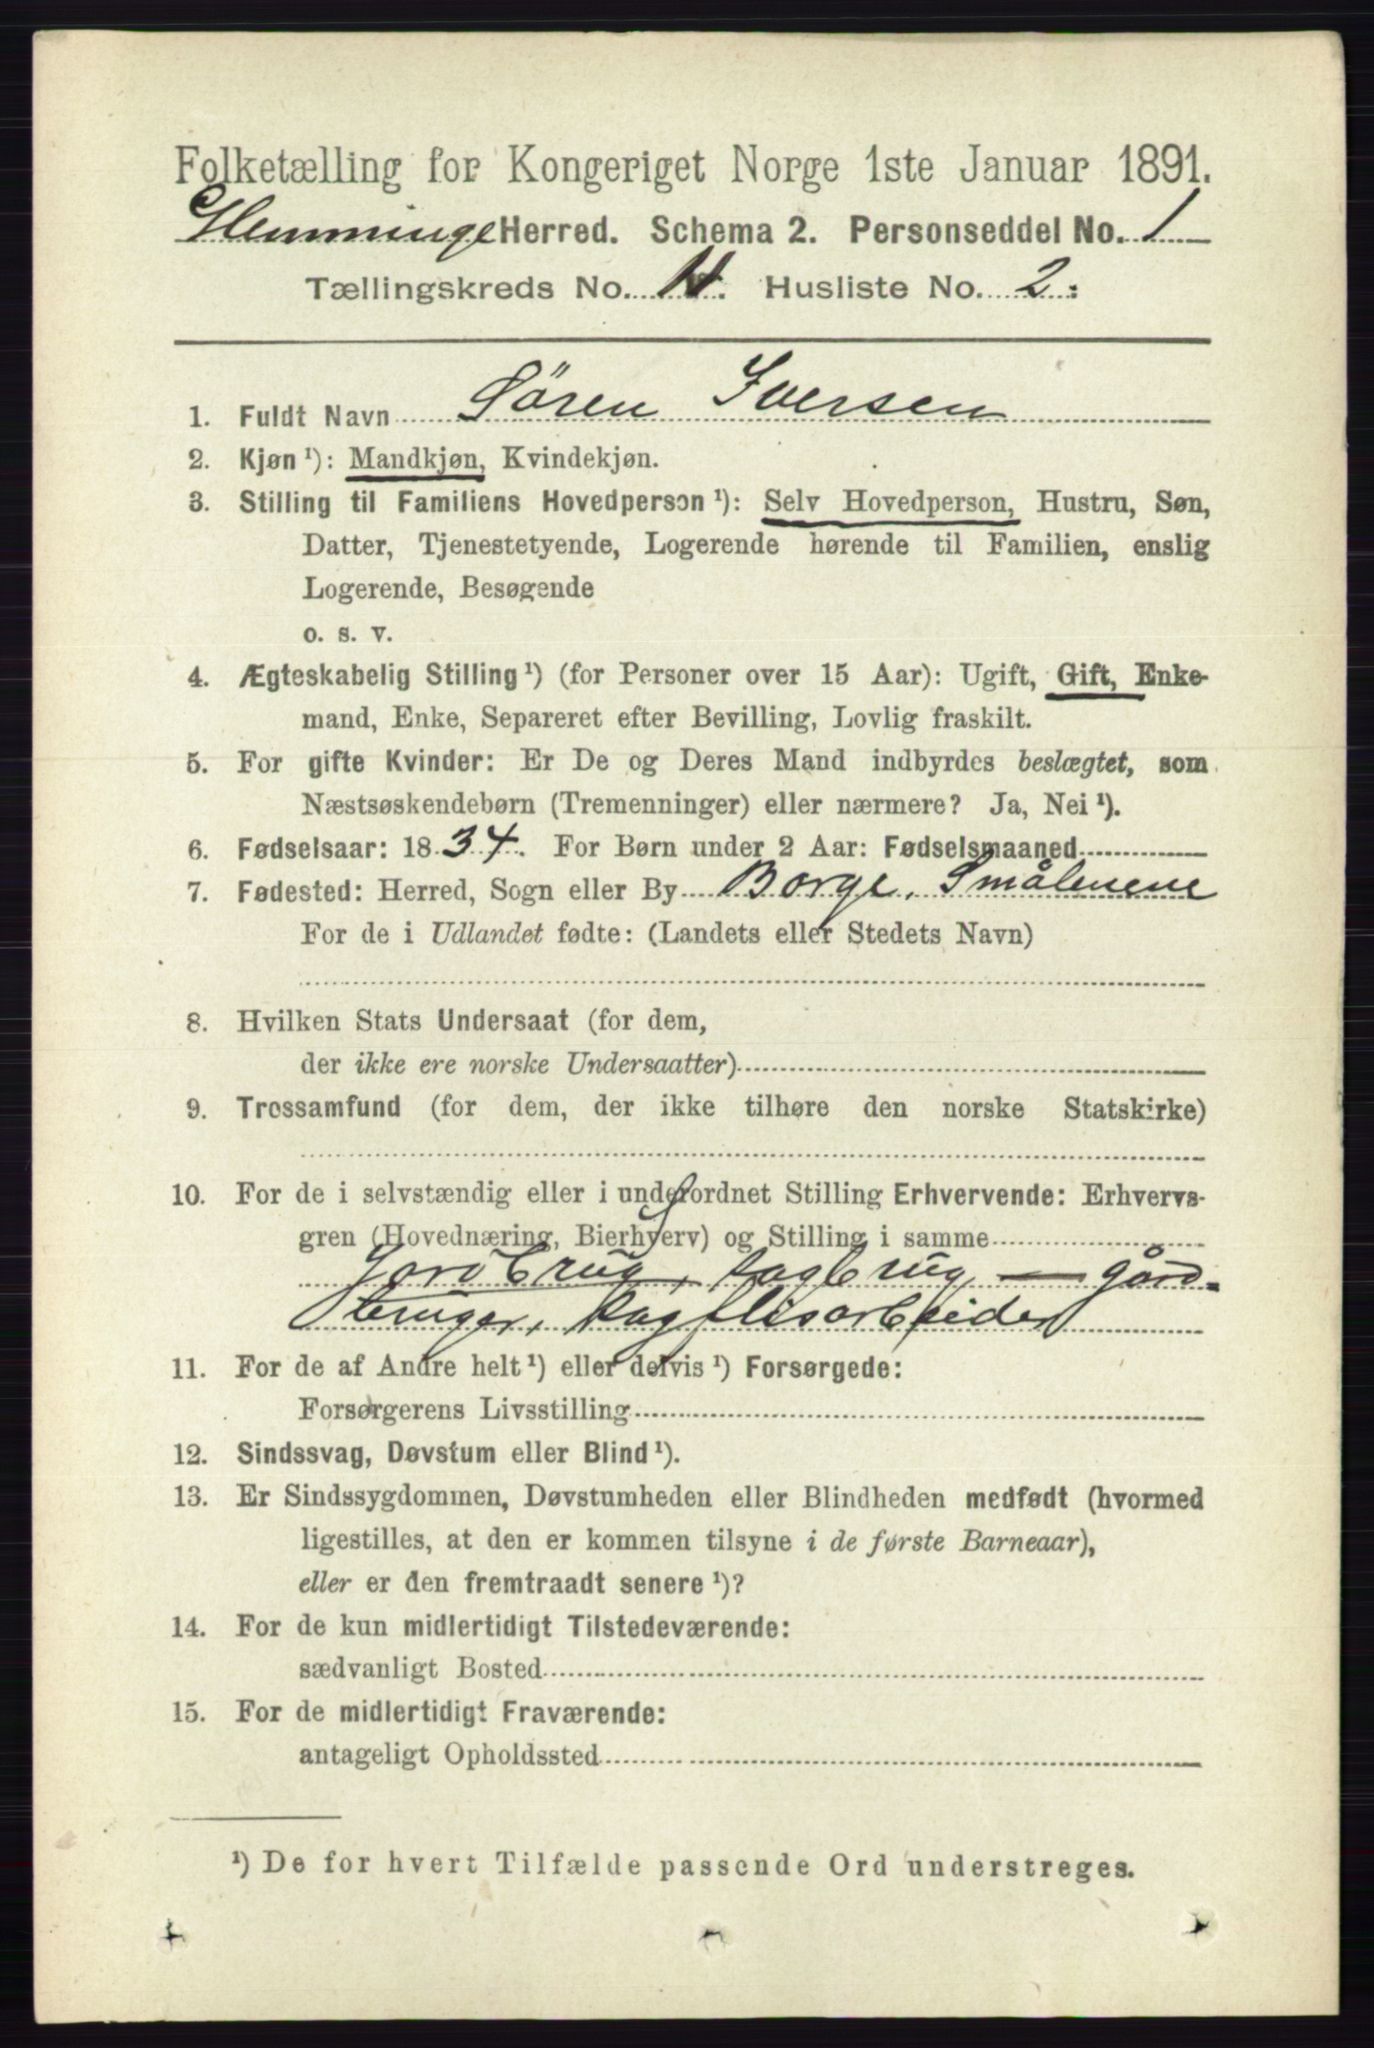 Folketælling for Kongeriget Norge 1ste Januar 1891.
Glemminge Herred. Schema 2. Personseddel No. 1
Tællingskreds No. 4. Husliste No. 2.
1. Fuldt Navn Søren Iversen
2. Kjøn ¹): Mandkjøn, Kvindekjøn.
3. Stilling til Familiens Hovedperson ¹): Selv Hovedperson, Hustru, Søn,
Datter, Tjenestetyende, Logerende hørende til Familien, enslig
Logerende, Besøgende
o. s. v.
4. Ægteskabelig Stilling ¹) (for Personer over 15 Aar): Ugift, Gift, Enke-
mand, Enke, Separeret efter Bevilling, Lovlig fraskilt.
5. For gifte Kvinder: Er De og Deres Mand indbyrdes beslægtet, som
Næstsøskendebørn (Tremenninger) eller nærmere? Ja, Nei ¹).
6. Fødselsaar: 1834. For Børn under 2 Aar: Fødselsmaaned
7. Fødested: Herred, Sogn eller By Borge, Smålenene
For de i Udlandet fødte: (Landets eller Stedets Navn)
8. Hvilken Stats Undersaat (for dem,
der ikke ere norske Undersaatter)
9. Trossamfund (for dem, der ikke tilhøre den norske Statskirke)
10. For de i selvstændig eller i underordnet Stilling Erhvervende: Erhvervs-
gren (Hovednæring, Bierhverv) og Stilling i samme
Jordbrug, sagbrug — gård-
bruger, sagflisarbeider
11. For de af Andre helt ¹) eller delvis ¹) Forsørgede:
Forsørgerens Livsstilling
12. Sindssvag, Døvstum eller Blind ¹).
13. Er Sindssygdommen, Døvstumheden eller Blindheden medfødt (hvormed
ligestilles, at den er kommen tilsyne i de første Barneaar),
eller er den fremtraadt senere ¹)?
14. For de kun midlertidigt Tilstedeværende:
sædvanligt Bosted
15. For de midlertidigt Fraværende:
antageligt Opholdssted
¹) De for hvert Tilfælde passende Ord understreges.